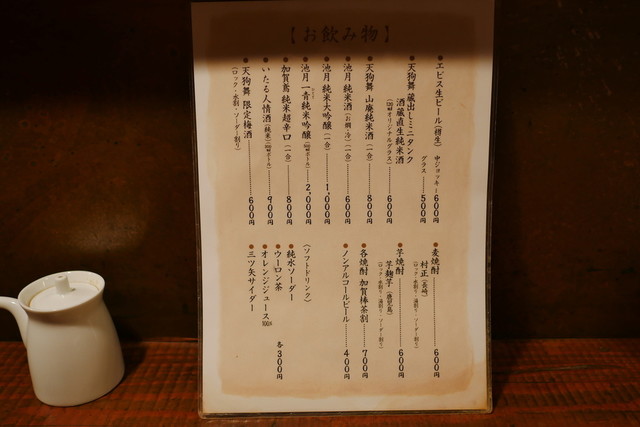 【お飲み物】
●ヱビス生ビール(樽生) 中ジョッキー 600円
グラス 500円
●天狗舞 蔵出しミニタンク
酒蔵直生純米酒
(120㎖オリジナルグラス) 600円
●天狗舞 山廃純米酒(一合) 800円
●池月 純米酒(お燗・冷) 600円
●池月 純米大吟醸(一合) 1,000円
●池月 一青純米吟醸 2,000円
●加賀鳶 純米超辛口(一合) 800円
●いたる人情酒(純米) 900円
●天狗舞 限定梅酒 600円
(ロック・水割・ソーダー割り)
●麦焼酎
村正(長崎) 600円
(ロック・水割り・湯割り・ソーダー割り)
●芋焼酎
芋麹芋(鹿児島) 600円
(ロック・水割り・湯割り・ソーダー割り)
●各焼酎 加賀棒茶割 700円
●ノンアルコールビール 400円
(ソフトドリンク)
●純水ソーダー
●ウーロン茶
●オレンジジュース100%
●三ツ矢サイダー
各300円